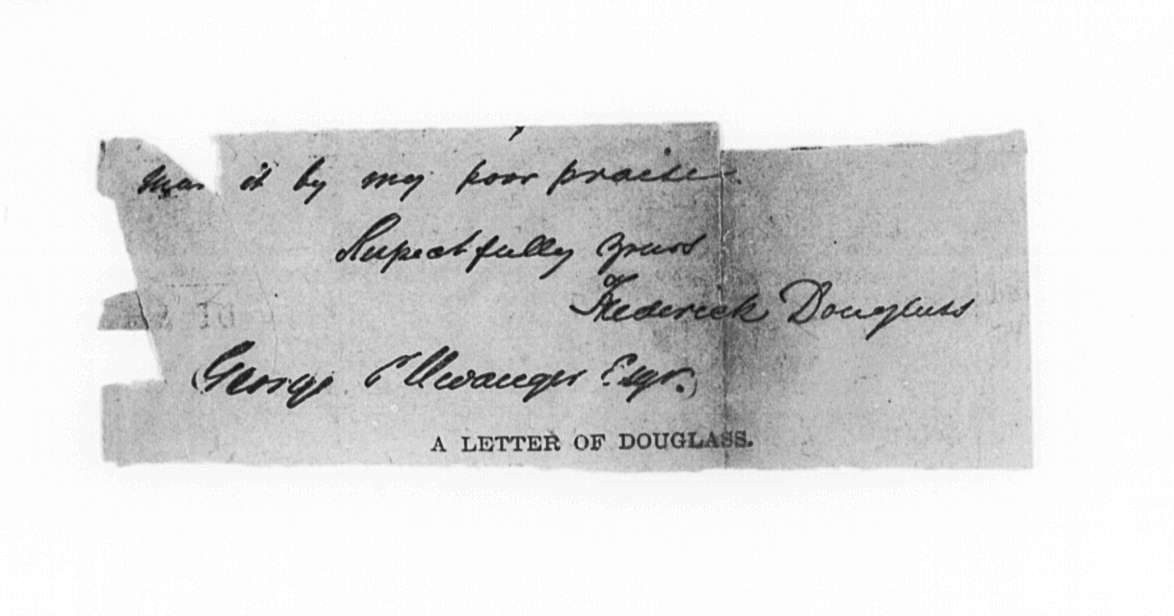 mar it by my poor praise.
Respectfully yours
Frederick Douglass
(George Ellwanger Esqr.)
A LETTER OF DOUGLASS.